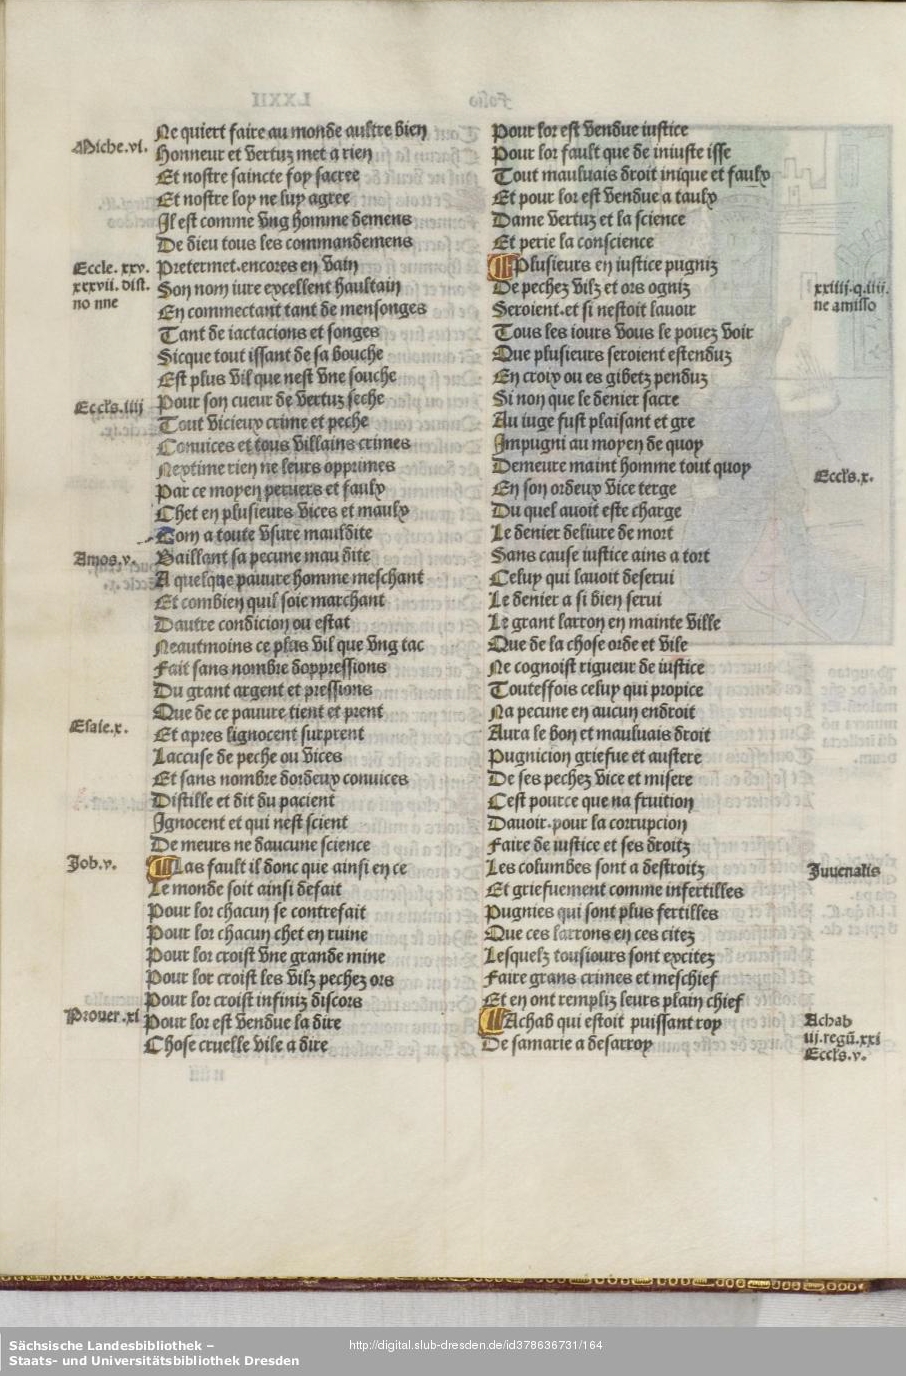 Miche.vi.
Eccle.xxv.
xxxvii.dist.
no nne
Eccls.iiij
Amos.v.
Esaie.x.
Job.v.
Prouer.xi
Ne quiert faire au monde aultre bien
Honneur et vertuz met a rien
Et nostre saincte foy sacree
Et nostre loy ne luy agree
Il est comme vng homme demens
De dieu tous les commandemens
Pretermet.encores en vain
Son nom iure excellent haultain
En commectant tant de mensonges
Tant de iactacions et songes
Sicque tout issant de sa bouche
Est plus vil que nest vne souche
Pour son cueur de vertuz seche
Tout vicieux crime et peche
Conuices et tous villains crimes
Nextime rien ne leurs opprimes
Par ce moyen peruers et faulx
Chet en plusieurs vices et maulx
Com a toute vsure mauldite
Baillant sa pecune mau dite
A quelque pauure homme meschant
Et combien quil soie marchant
Dautre condicion ou estat
Neautmoins ce plus vil que vng tac
Fait sans nombre doppressions
Du grant argent et pressions
Que de ce pauure tient et prent
Et apres lignocent surprent
Laccuse de peche ou vices
Et sans nombre dordeux conuices
Distille et dit du pacient
Ignocent et qui nest scient
De meurs ne daucune science
Las fault il donc que ainsi en ce
Le monde soit ainsi defait
Pour lor chacun se contrefait
Pour lor chacun chet en ruine
Pour lor croist vne grande mine
Pour lor croist les vilz pechez ors
Pour lor croist infiniz discors
Pour lor est vendue la dire
Chose cruelle vile a dire
Pour lor est vendue iustice
Pour lor fault que de iniuste isse
Tout mauluais droit inique et faulx
Et pour lor est vendue a taulx
Dame vertuz et la science
Et perie la conscience
Plusieurs en iustice pugniz
De pechez vilz et ors ogniz
Seroient.et si nestoit lauoir
Tous les iours vous le pouez voir
Que plusieurs seroient estenduz
En croix ou es gibetz penduz
Si non que le denier sacre
Au iuge fust plaisant et gre
Impugni au moyen de quoy
Demeure maint homme tout quoy
En son ordeux vice terge
Du quel auoit este charge
Le denier deliure de mort
Sans cause iustice ains a tort
Celuy qui lauoit deserui
Le denier a si bien serui
Le grant larron en mainte ville
Que de la chose orde et vile
Ne cognoist rigueur de iustice
Toutesfois celuy qui propice
Na pecune en aucun endroit
Aura le bon et mauluais droit
Pugnicion griefue et austere
De ses pechez vice et misere
Cest pource que na fruition
Dauoir.pour la corrupcion
Faire de iustice et ses droitz
Les columbes sont a destroitz
Et griefuement comme infertilles
Pugnies qui sont plus fertilles
Que ces larrons en ces citez
Lesquelz tousiours sont excitez
Faire grans crimes et meschief
Et en ont rempliz leurs plain chief
Achab qui estoit puissant roy
De samarie a desarroy
xxiiii.q.iiii.
ne amisso
Eccls.x.
Juuenalis
Achab
iij.regū.xxi
Eccls.v.
Sächsische Landesbibliothek –
Staats- und Universitätsbibliothek Dresden
http://digital.slub-dresden.de/id378636731/164